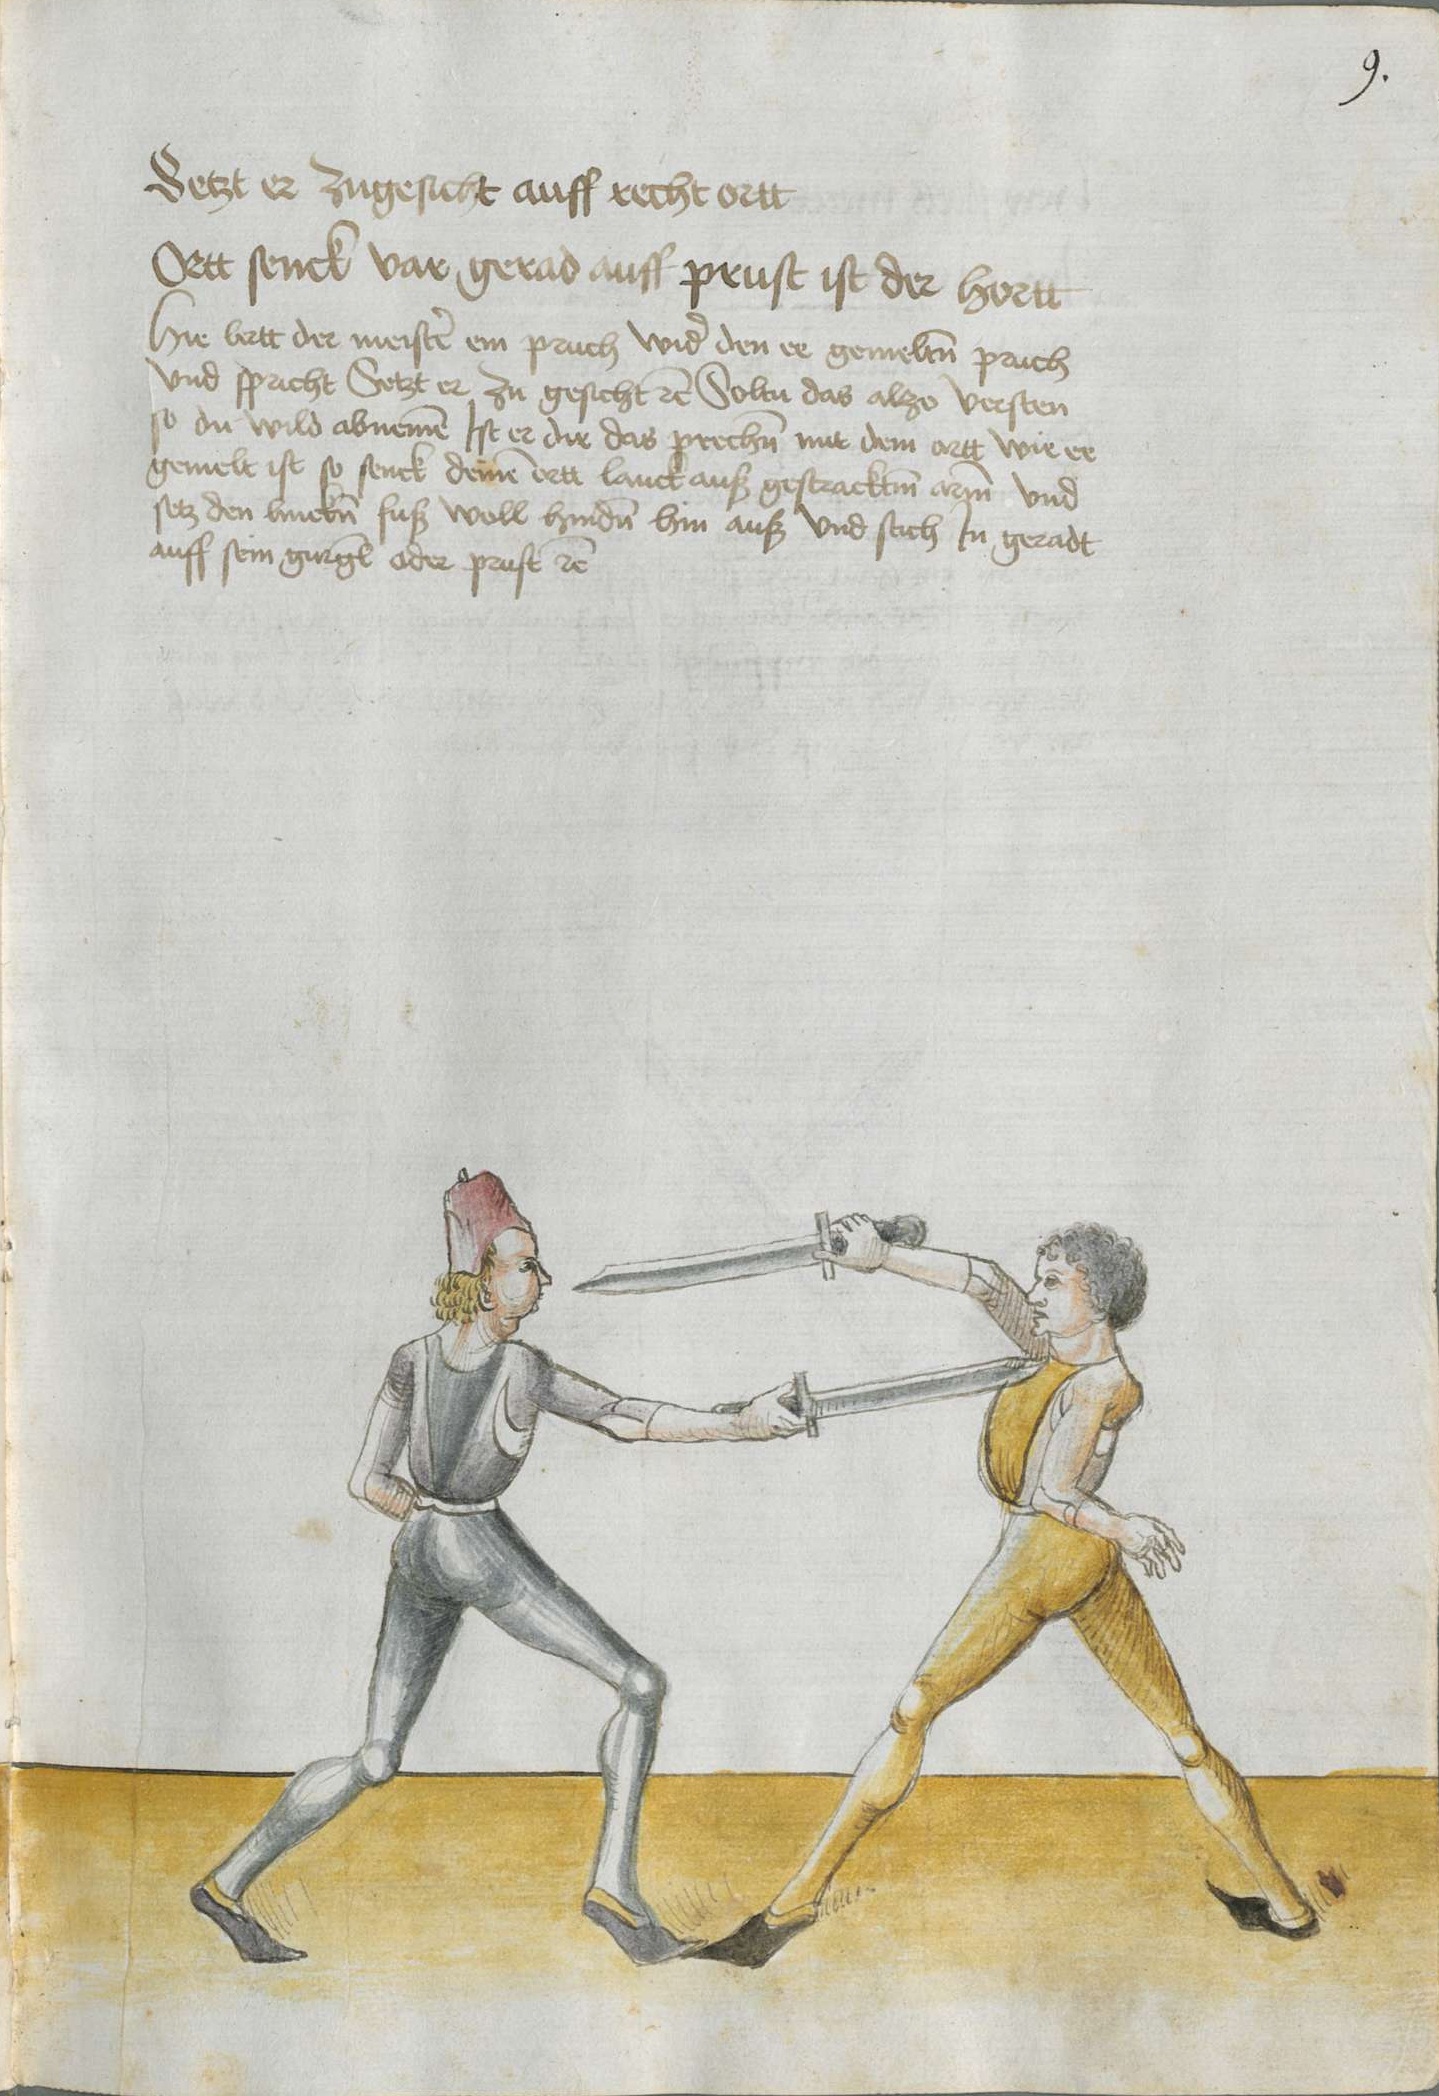 9.
Setzt er zugesicht auff recht ortt
Ortt senck var gerad auff prust ist der hortt
Hie lertt der meister̄ ein pruch wid̄ den ee gemeltn̄ pruch
vnd spricht Setzt er zu gesicht rc̄ Soltu das alzo versten
so du wild abnemē Ist er dir das prechn̄ mit dem ortt wie ee
gemelt ist so senck deinē ortt lanck auß gestracktm̄ arm̄ vnd
setz den linckn̄ fuß woll hindn̄ hin auß vnd stich In geradt
auff sein gurgl̄ oder prust rc̄